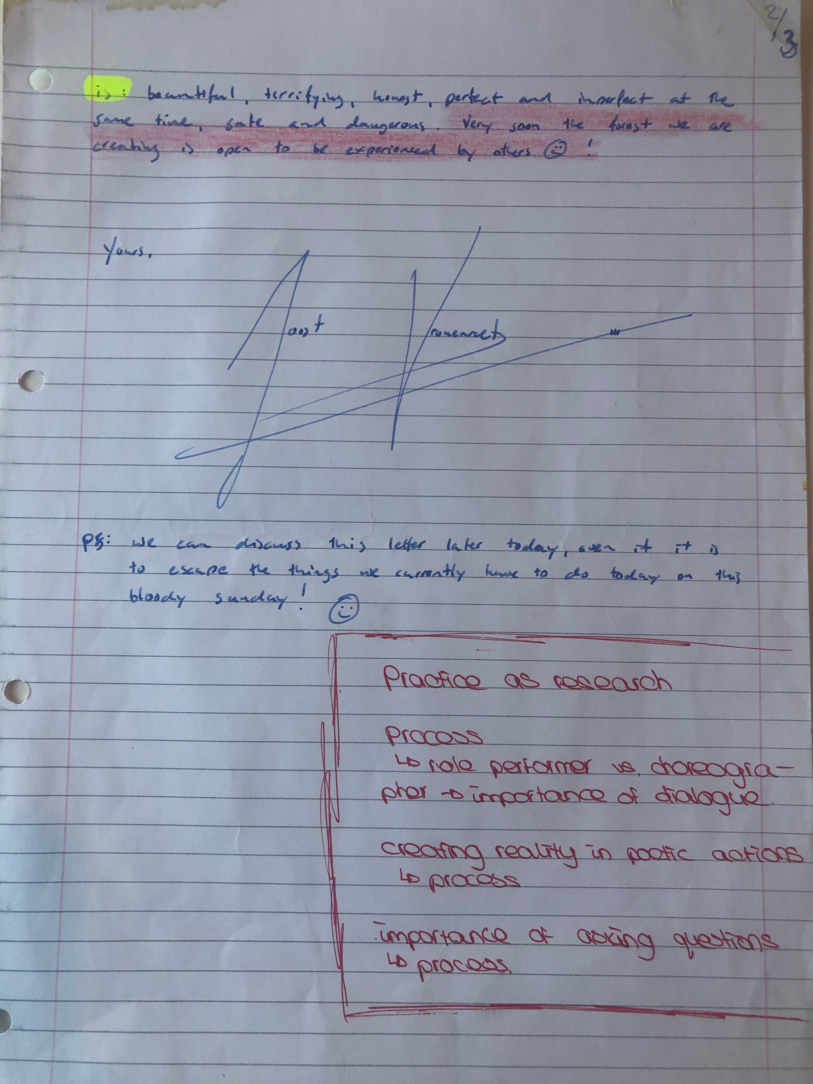 2/3
is: beauntiful, terrifying, honest, perfect and inperfect at the
same time, safe and dangerous. Very soon the forest we are
creating is open to be experienced by others ☺ !
Yours,
Joost
PS: we can discuss this letter later today, even if it is
to escape the things we currently have to do today on this
bloody sunday! ☺
Practice as research
Process
↳ role performer vs. choreogra-
pher → importance of dialogue.
creating reality in poetic actions
↳ process
importance of asking questions
↳ process.